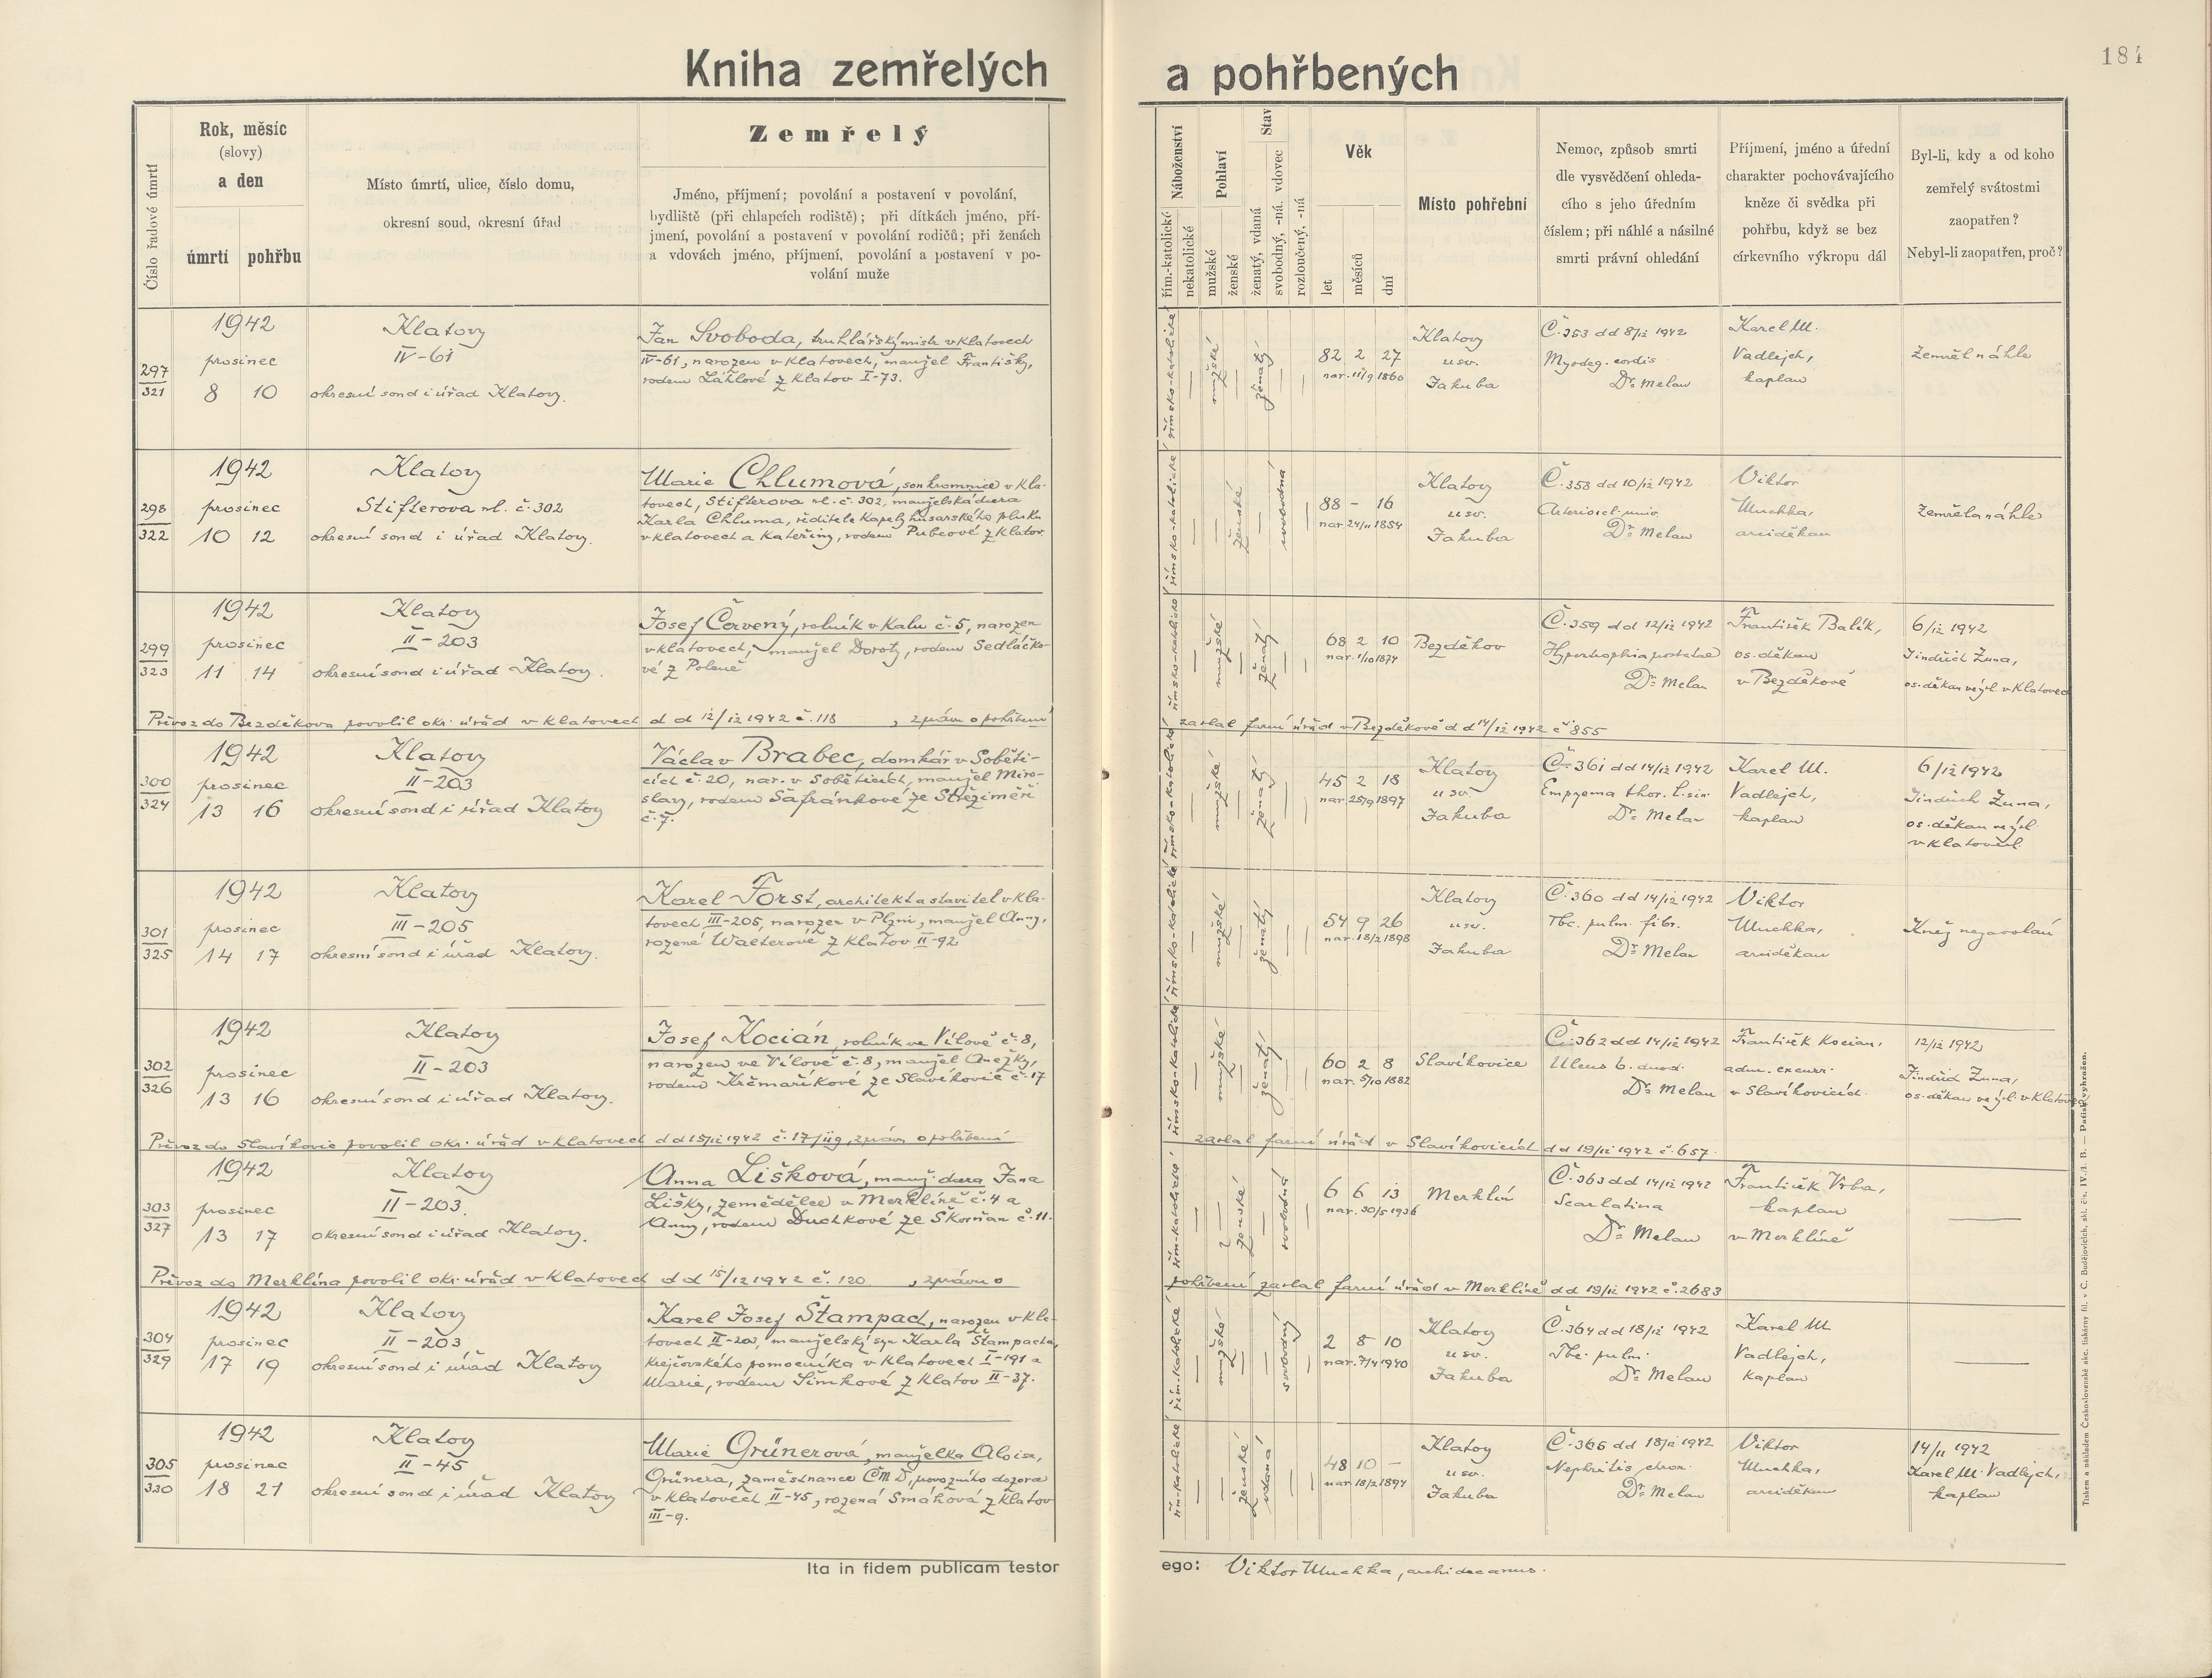 184
Kniha zemřelých a pohřbených
Číslo řadové úmrtí
Rok, měsíc
(slovy)
a den
úmrtí pohřbu
Místo úmrtí, ulice, číslo domu,
okresní soud, okresní úřad
Zemřelý
Jméno, příjmení; povolání a postavení v povolání,
bydliště (při chlapcích rodiště); při dítkách jméno, pří-
jmení, povolání a postavení v povolání rodičů; při ženách
a vdovách jméno, příjmení, povolání a postavení v po-
volání muže
Náboženství
řím.-katolické
nekatolické
Pohlaví
mužské
ženské
Stav
ženatý, vdaná
svobodný, -ná. vdovec
rozloučený, -ná
Věk
let
měsíců
dní
Místo pohřební
Nemoc, způsob smrti
dle vysvědčení ohleda-
cího s jeho úředním
číslem; při náhlé a násilné
smrti právní ohledání
Příjmení, jméno a úřední
charakter pochovávajícího
kněze či svědka při
pohřbu, když se bez
církevního výkropu dál
Byl-li, kdy a od koho
zemřelý svátostmi
zaopatřen?
Nebyl-li zaopatřen, proč?
297
321
1942
prosinec
8 10
Klatovy
IV-61
okresní soud i úřad Klatovy.
Jan Svoboda, truhlářský mistr v Klatovech
IV-61, narozen v Klatovech, manžel Františky,
rodem Láhlové z Klatov I-73.
římsko-katolické
mužské
ženatý
82 2 27
nar. 11/9 1860
Klatovy
u sv.
Jakuba
Č. 353 dd 8/12 1942
Myodeg. cordis
Dr. Melan
Karel M.
Vadlejch,
kaplan
Zemřel náhle
298
322
1942
prosinec
10 12
Klatovy
Stifterova ul. č. 302
okresní soud i úřad Klatovy.
Marie Chlumová, soukromnice v Kla-
tovech, Stifterova ul. č. 302, manželská dcera
Karla Chluma, ředitele kapely husarského pluku
v Klatovech a Kateřiny, rodem Pubcové z Klatov.
římsko-katolické
ženské
svobodná
88 - 16
nar. 24/11 1854
Klatovy
u sv.
Jakuba
Č. 358 dd 10/12 1942
Arterioscl. univ.
Dr. Melan
Viktor
Muchka,
arciděkan
Zemřela náhle
299
323
1942
prosinec
11 14
Klatovy
II-203
okresní soud i úřad Klatovy.
Josef Červený, rolník v Kalu č. 5, narozen
v Klatovech, manžel Doroty, rodem Sedláčko-
vé z Poleně
římsko-katolické
mužské
ženatý
68 2 10
nar. 1/10 1874
Bezděkov
Č. 359 dd 12/12 1942
Hypertrophia postatae
Dr. Melan
František Balík,
os. děkan
v Bezděkově
6/12 1942
Jindřich Žuna,
os. děkan ve výsl. v Klatovech
Převoz do Bezděkova povolil okr. úřad v Klatovech d d 12/12 1942 č. 118, zprávu o pohřbení
zaslal farní úřad v Bezděkově d d 14/12 1942 č 855
300
324
1942
prosinec
13 16
Klatovy
II-203
okresní soud i úřad Klatovy
Václav Brabec, domkář v Soběti-
cích č. 20, nar. v Soběticích, manžel Miro-
slavy, rodem Šafránkové ze Střeziměři
č. 7.
římsko-katolické
mužské
ženatý
45 2 18
nar. 25/9 1897
Klatovy
u sv.
Jakuba
Č. 361 dd 14/12 1942
Empyema thor. l. sin.
Dr. Melan
Karel M.
Vadlejch,
kaplan
6/12 1942
Jindřich Žuna,
os. děkan ve výsl.
v Klatovech
301
325
1942
prosinec
14 17
Klatovy
III-205
okresní soud i úřad Klatovy.
Karel Forst, architekt a stavitel v Kla-
tovech III-205, narozen v Plzni, manžel Anny,
rozené Walterové z Klatov II-92
římsko-katolické
mužské
ženatý
54 9 26
nar. 18/2 1898
Klatovy
u sv.
Jakuba
Č. 360 dd 14/12 1942
Tbc. pulm. fibr.
Dr. Melan
Viktor
Muchka,
arciděkan
Kněz nezavolán
302
326
1942
prosinec
13 16
Klatovy
II-203
okresní soud i úřad Klatovy.
Josef Kocián, rolník ve Vílově č. 8,
narozen ve Vílově č. 8, manžel Anežky,
rodem Krčmaříkové ze Slavíkovic č. 17
římsko-katolické
mužské
ženatý
60 2 8
nar. 5/10 1882
Slavíkovice
Č. 362 dd 14/12 1942
Ulcus b. duod.
Dr. Melan
František Kocian,
adm. excurr.
v Slavíkovicích.
12/12 1942
Jindřich Žuna,
os. děkan ve výsl. v Klatovech
Převoz do Slavíkovic povolil okr. úřad v Klatovech d d 15/12 1942 č. 17/119, zprávu o pohřbení
zaslal farní úřad v Slavíkovicích dd 19/12 1942 č. 657.
303
327
1942
prosinec
13 17
Klatovy
II-203.
okresní soud i úřad Klatovy.
Anna Lišková, manž. dcera Jana
Lišky, zemědělce v Merklíně č. 4 a
Anny, rodem Duchkové ze Skočňan č. 11.
řím-katolické
ženské
svobodná
6 6 13
nar. 30/5 1936
Merklín
Č. 363 dd 14/12 1942
Scarlatina
Dr. Melan
František Vrba,
kaplan
v Merklíně
Převoz do Merklína povolil okr. úřad v Klatovech d d 15/12 1942 č. 120, zprávu o
pohřbení zaslal farní úřad v Merklíně dd 19/12 1942 č. 2683
304
329
1942
prosinec
17 19
Klatovy
II-203
okresní soud i úřad Klatovy
Karel Josef Štampach, narozen v Kla-
tovech II-203, manželský syn Karla Štampacha,
krejčovského pomocníka v Klatovech I-191 a
Marie, rodem Šimkové z Klatov II-37.
řím.katolické
mužské
svobodný
2 8 10
nar. 7/4 1940
Klatovy
u sv.
Jakuba
Č. 364 dd 18/12 1942
Tbc. pulm.
Dr. Melan
Karel M
Vadlejch,
kaplan
305
330
1942
prosinec
18 21
Klatovy
II-45
okresní soud i úřad Klatovy
Marie Grünerová, manželka Aloisa,
Grünera, zaměstnance ČMD, provozního dozorce
v Klatovech II-45, rozená Smáhová z Klatov
III-9.
řím-katolické
ženské
vdaná
48 10 -
nar. 18/2 1894
Klatovy
u sv.
Jakuba
Č. 366 dd 18/12 1942
Nephritis chron.
Dr. Melan
Viktor
Muchka,
arciděkan
14/11 1942
Karel M. Vadlejch,
kaplan
Ita in fidem publicam testor ego: Viktor Muchka, archidecanus.
Tiskem a nákladem Českoslovanské akc. tiskárny fil. v Č. Budějovicích, skl. čís. IV./1. B. — Padisk vyhražen.